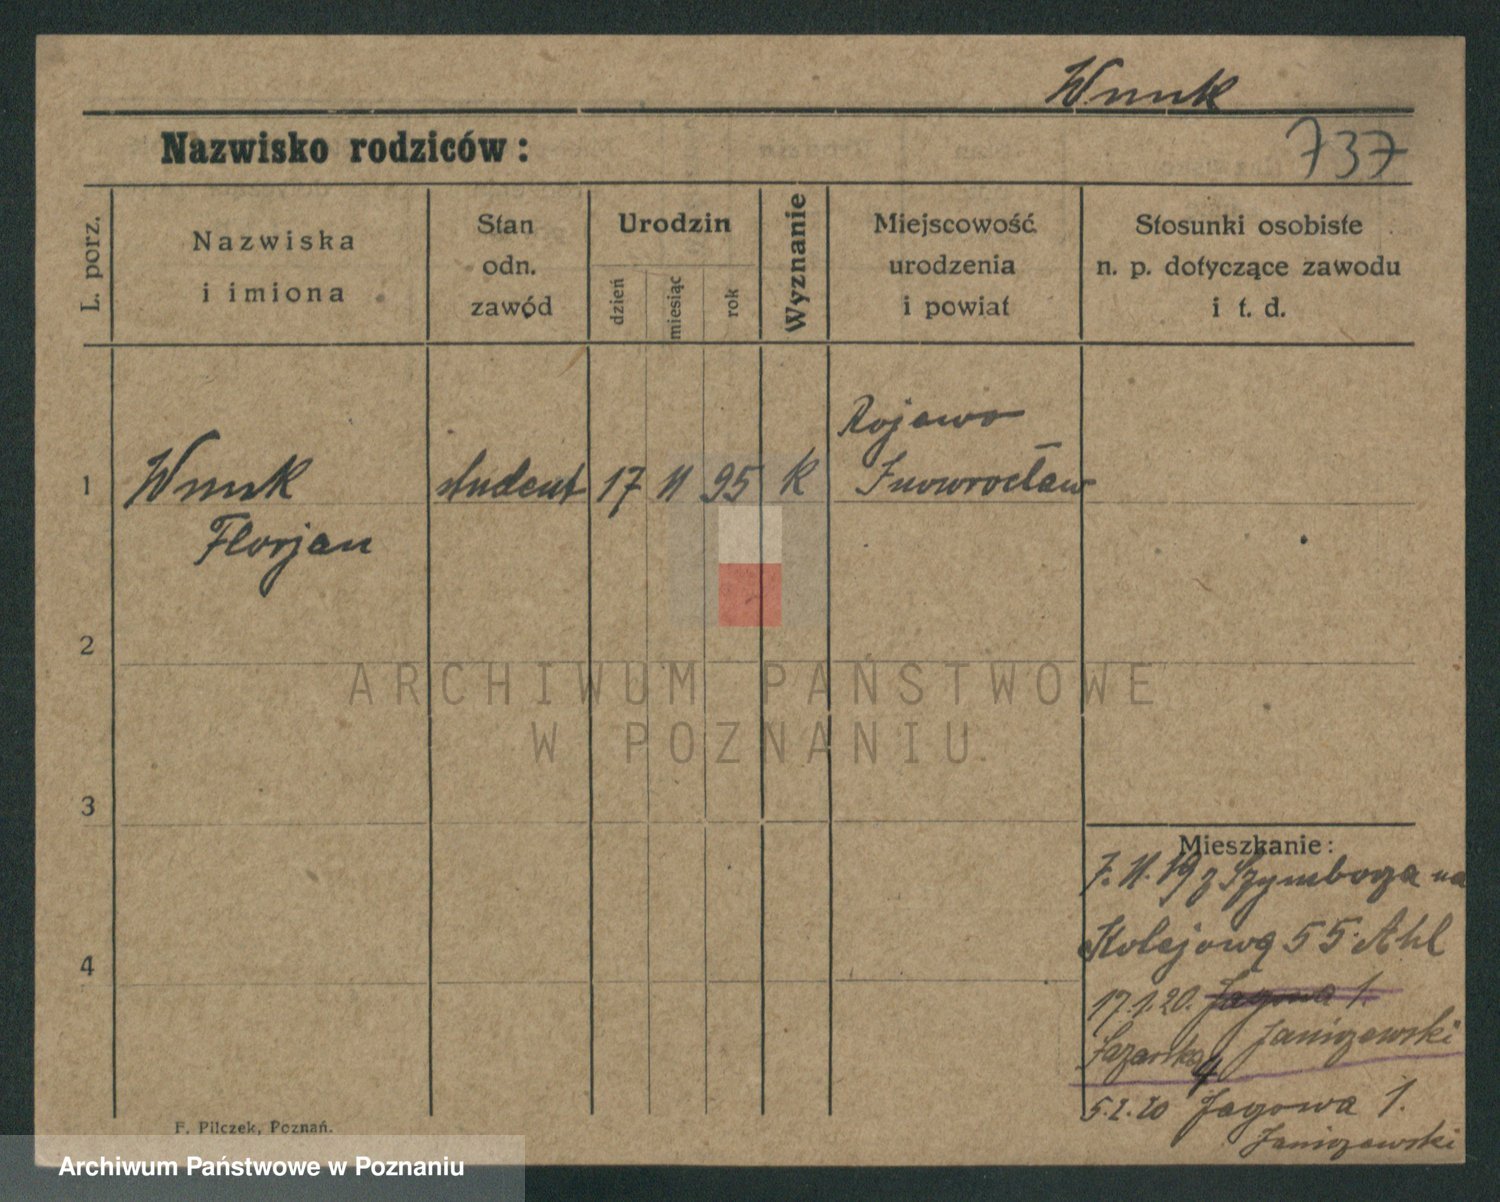 Wnuk
737
Nazwisko rodziców:
L. porz.
Nazwiska
i imiona
Stan
odn.
zawód
Urodzin
dzień
miesiąc
rok
Wyznanie
Miejscowość
urodzenia
i powiat
Stosunki osobiste
n. p. dotyczące zawodu
i t. d.
1
Wnuk
Florjan
student
17
11
95
k
Rojewo
Inowrocław
2
3
4
Mieszkanie:
7.11.19 z Szymborza na
Kolejową 55
17.1.20. Jagowa 1.
Łazarska 4 Janiszewski
5.2.20 Jagowa 1.
Janiszewski
F. Pilczek, Poznań.
ARCHIWUM PAŃSTWOWE
W POZNANIU
Archiwum Państwowe w Poznaniu